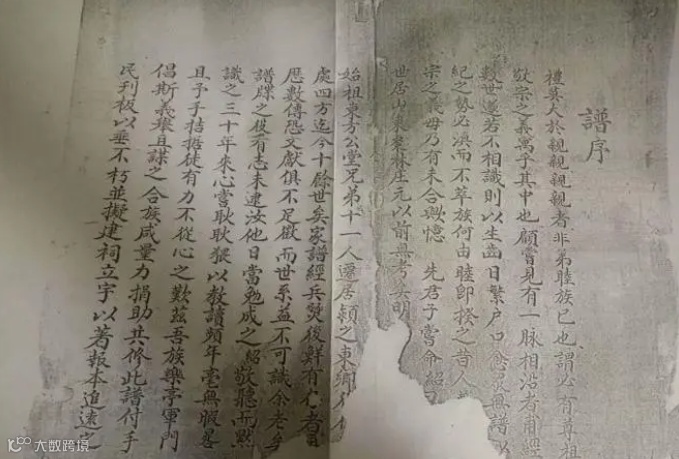 譜序
禮莫大於親親親親者非第睦族已也謂必有尊祖
敬宗之義寓乎其中也顧嘗見有一脈相沿者甫經
數世遂若不相識則以生齒日繁户口愈 無譜以
紀之勢必渙而不萃族何由睦即揆之昔人
宗之義毋乃有未合歟憶 先君子嘗命紹
世居山東棗林庄元以前無考矣明
始祖東方公堂兄弟十一人遷居潁之東鄉
處四方迄今十餘世矣家譜經兵燹後鮮有仁者
歷數傳恐文獻俱不足徵而世系益不可識余老矣
譜牒之役有志未逮汝他日當勉成之紹敬聽而默
識之三十年來心嘗耿耿狠以教讀頻年毫無暇晷
且予手拮据徒有力不從心之歎茲吾族樂亭軍門
倡斯義舉且謀之合族咸量力捐助共修此譜付手
民刊板以垂不朽並擬建祠立宇以著報本追遠之
大数跨境